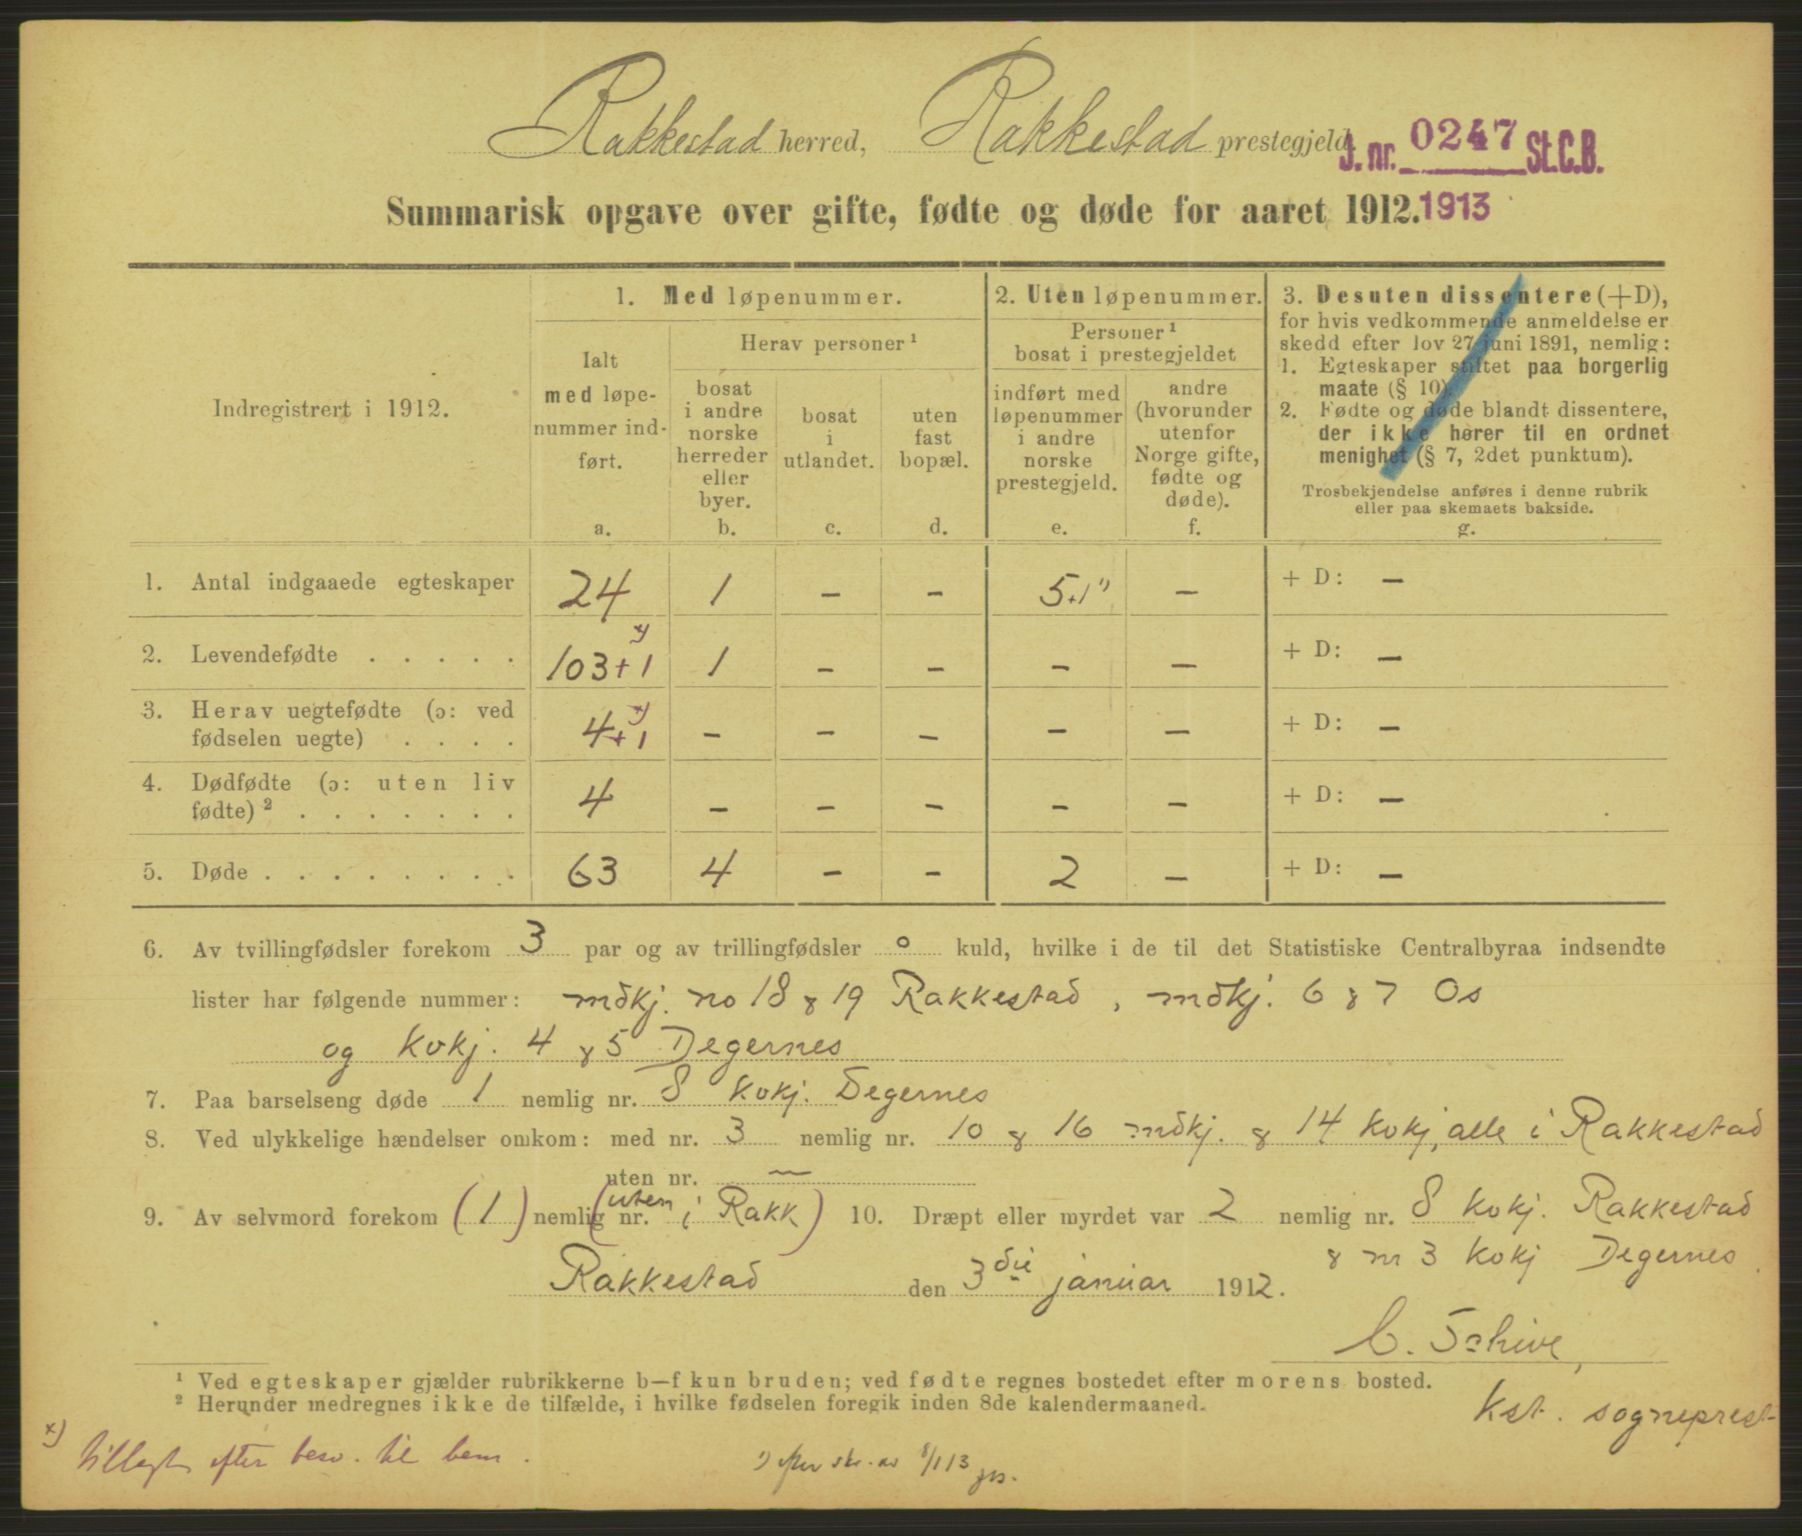 Rakkestad herred, Rakkestad prestegjeld
J. nr. 0247 St.C.B.
Summarisk opgave over gifte, fødte og døde for aaret 1912. 1913
Indregistrert i 1912.
1. Med løpenummer.
Ialt med løpe-nummer ind-ført.
a.
Herav personer ¹
bosat i andre norske herreder eller byer.
b.
bosat i utlandet.
c.
uten fast bopæl.
d.
2. Uten løpenummer.
Personer ¹ bosat i prestegjeldet
indført med løpenummer i andre norske prestegjeld.
e.
andre (hvorunder utenfor Norge gifte, fødte og døde).
f.
3. Desuten dissentere (+D),
for hvis vedkommende anmeldelse er
skedd efter lov 27 juni 1891, nemlig:
1. Egteskaper stiftet paa borgerlig
maate (§ 10).
2. Fødte og døde blandt dissentere,
der ikke hører til en ordnet
menighet (§ 7, 2det punktum).
Trosbekjendelse anføres i denne rubrik
eller paa skemaets bakside.
g.
1. Antal indgaaede egteskaper 24 1 – – 5+1 ¹) – + D: –
2. Levendefødte . . . . . 103+1 x) 1 – – – – + D: –
3. Herav uegtefødte (ɔ: ved
fødselen uegte) . . . . 4+1 x) – – – – – + D: –
4. Dødfødte (ɔ: uten liv
fødte) ² . . . . . . . 4 – – – – – + D: –
5. Døde . . . . . . . . 63 4 – – 2 – + D: –
6. Av tvillingfødsler forekom 3 par og av trillingfødsler 0 kuld, hvilke i de til det Statistiske Centralbyraa indsendte
lister har følgende nummer: mdkj. no 18 & 19 Rakkestad, mdkj. 6 & 7 Os
og kvkj. 4 & 5 Degernes
7. Paa barselseng døde 1 nemlig nr. 8 kvkj. Degernes
8. Ved ulykkelige hændelser omkom: med nr. 3 nemlig nr. 10 & 16 mdkj. & 14 kvkj, alle i Rakkestad
uten nr. –
9. Av selvmord forekom (1) nemlig (uten nr. i Rakk) 10. Dræpt eller myrdet var 2 nemlig nr. 8 kvkj. Rakkestad
& nr 3 kvkj Degernes.
Rakkestad den 3die januar 1912.
C. Schive,
kst. sogneprest
¹ Ved egteskaper gjælder rubrikkerne b—f kun bruden; ved fødte regnes bostedet efter morens bosted.
² Herunder medregnes ikke de tilfælde, i hvilke fødselen foregik inden 8de kalendermaaned.
x) tillagt efter besv. til bem.
¹) efter skr. av 8/1 13